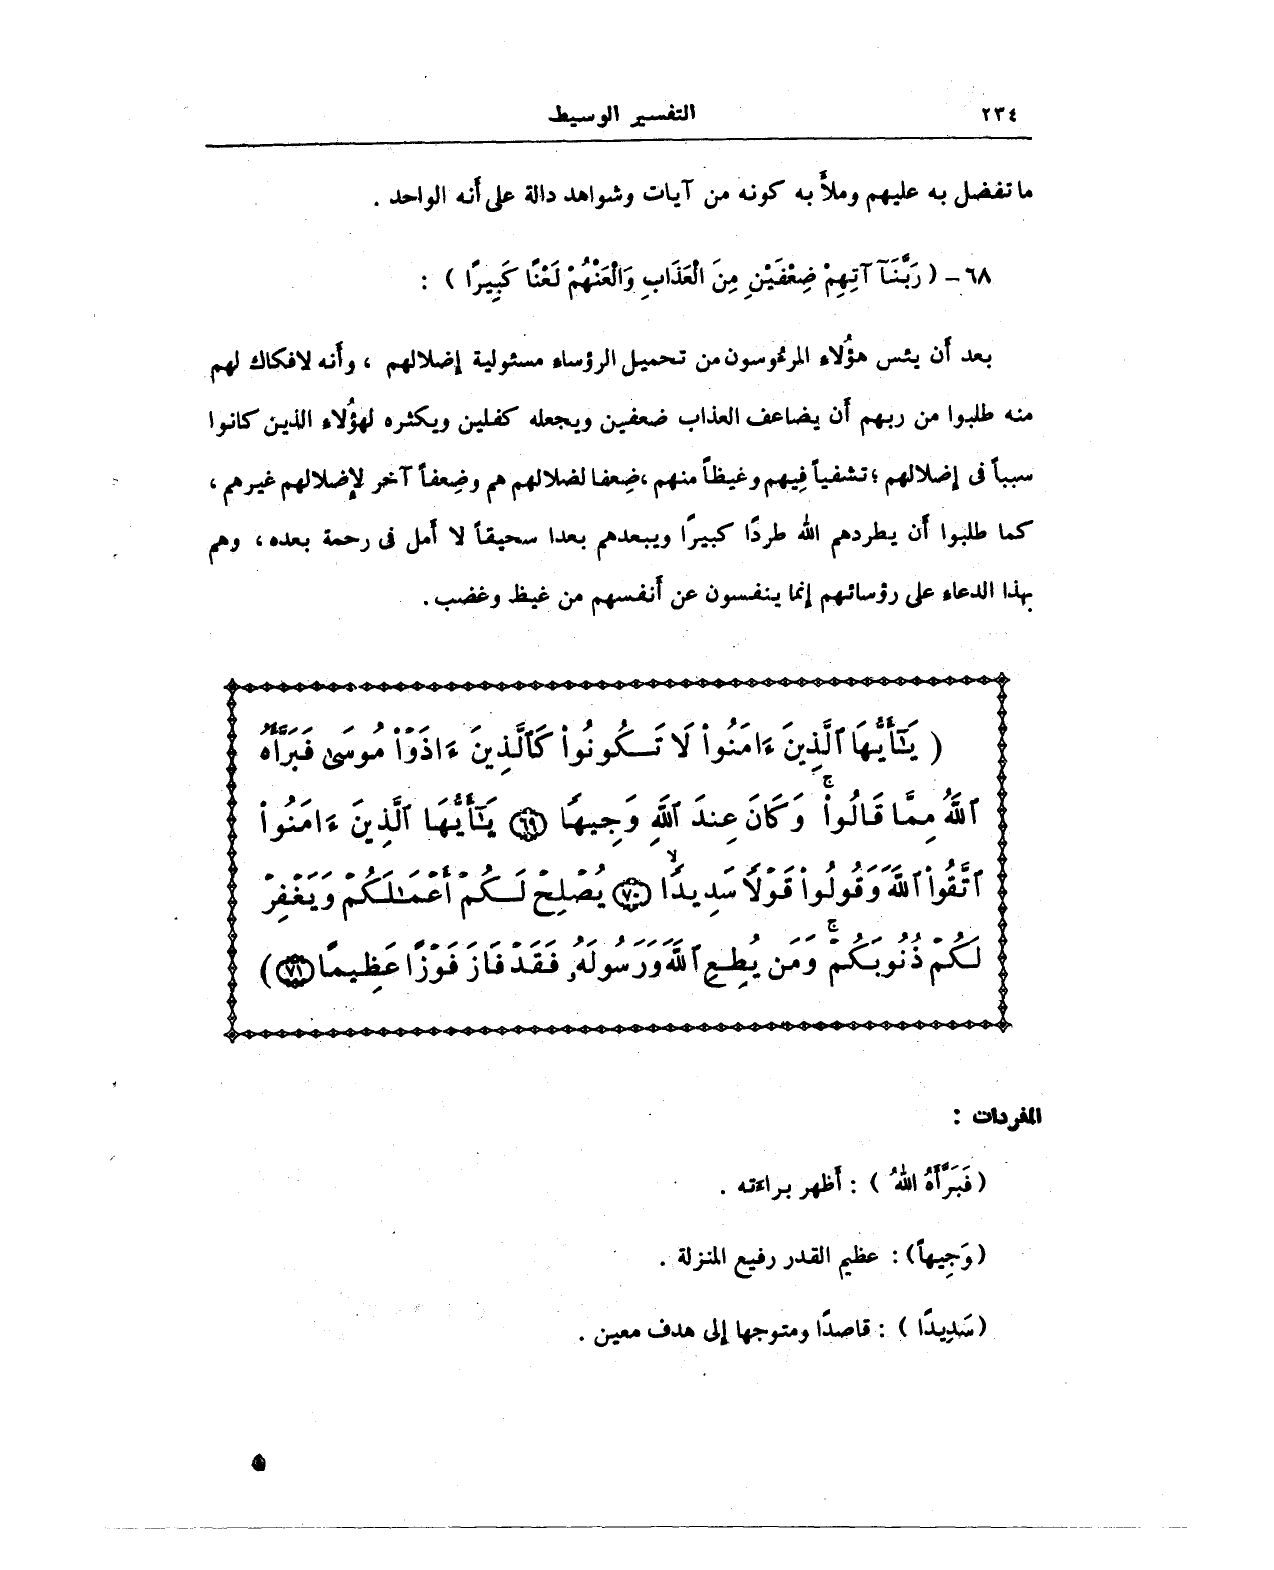 ٢٣٤
التفسير الوسيط
ما تفضل به عليهم وملأ به كونه من آيات وشواهد دالة على أنه الواحد .
٦٨ – ( رَبَّنَآ آتِهِمْ ضِعْفَيْنِ مِنَ الْعَذَابِ وَالْعَنْهُمْ لَعْنًا كَبِيرًا ) :
بعد أن يئس هؤُلاء المرءُوسون من تحميل الرؤساء مسئولية إضلالهم ، وأنه لا فكاك لهم
منه طلبوا من ربهم أن يضاعف العذاب ضعفين ويجعله كفلين ويكثره لهؤُلاء الذين كانوا
سبباً فى إضلالهم ؛ تشفياً فِيهم وغيظاً منهم ، ضِعفا لضلالهم هم وضِعفاً آخر لإضلالهم غيرهم ،
كما طلبوا أن يطردهم الله طردًا كبيرًا ويبعدهم بعدا سحيقاً لا أمل فى رحمة بعده ، وهم
بهذا الدعاء على رؤسائهم إنما ينفسون عن أنفسهم من غيظ وغضب .
( يَٰٓأَيُّهَا ٱلَّذِينَ ءَامَنُوا۟ لَا تَكُونُوا۟ كَٱلَّذِينَ ءَاذَوْا۟ مُوسَىٰ فَبَرَّأَهُ
ٱللَّهُ مِمَّا قَالُوا۟ ۚ وَكَانَ عِندَ ٱللَّهِ وَجِيهًا ٦٩ يَٰٓأَيُّهَا ٱلَّذِينَ ءَامَنُوا۟
ٱتَّقُوا۟ ٱللَّهَ وَقُولُوا۟ قَوْلًا سَدِيدًا ۙ ٧٠ يُصْلِحْ لَكُمْ أَعْمَٰلَكُمْ وَيَغْفِرْ
لَكُمْ ذُنُوبَكُمْ ۚ وَمَن يُطِعِ ٱللَّهَ وَرَسُولَهُۥ فَقَدْ فَازَ فَوْزًا عَظِيمًا ٧١ )
المفردات :
( فَبَرَّأَهُ اللهُ ) : أظهر براءته .
( وَجِيهاً ) : عظيم القدر رفيع المنزلة .
( سَدِيدًا ) : قاصدًا ومتوجها إلى هدف معين .